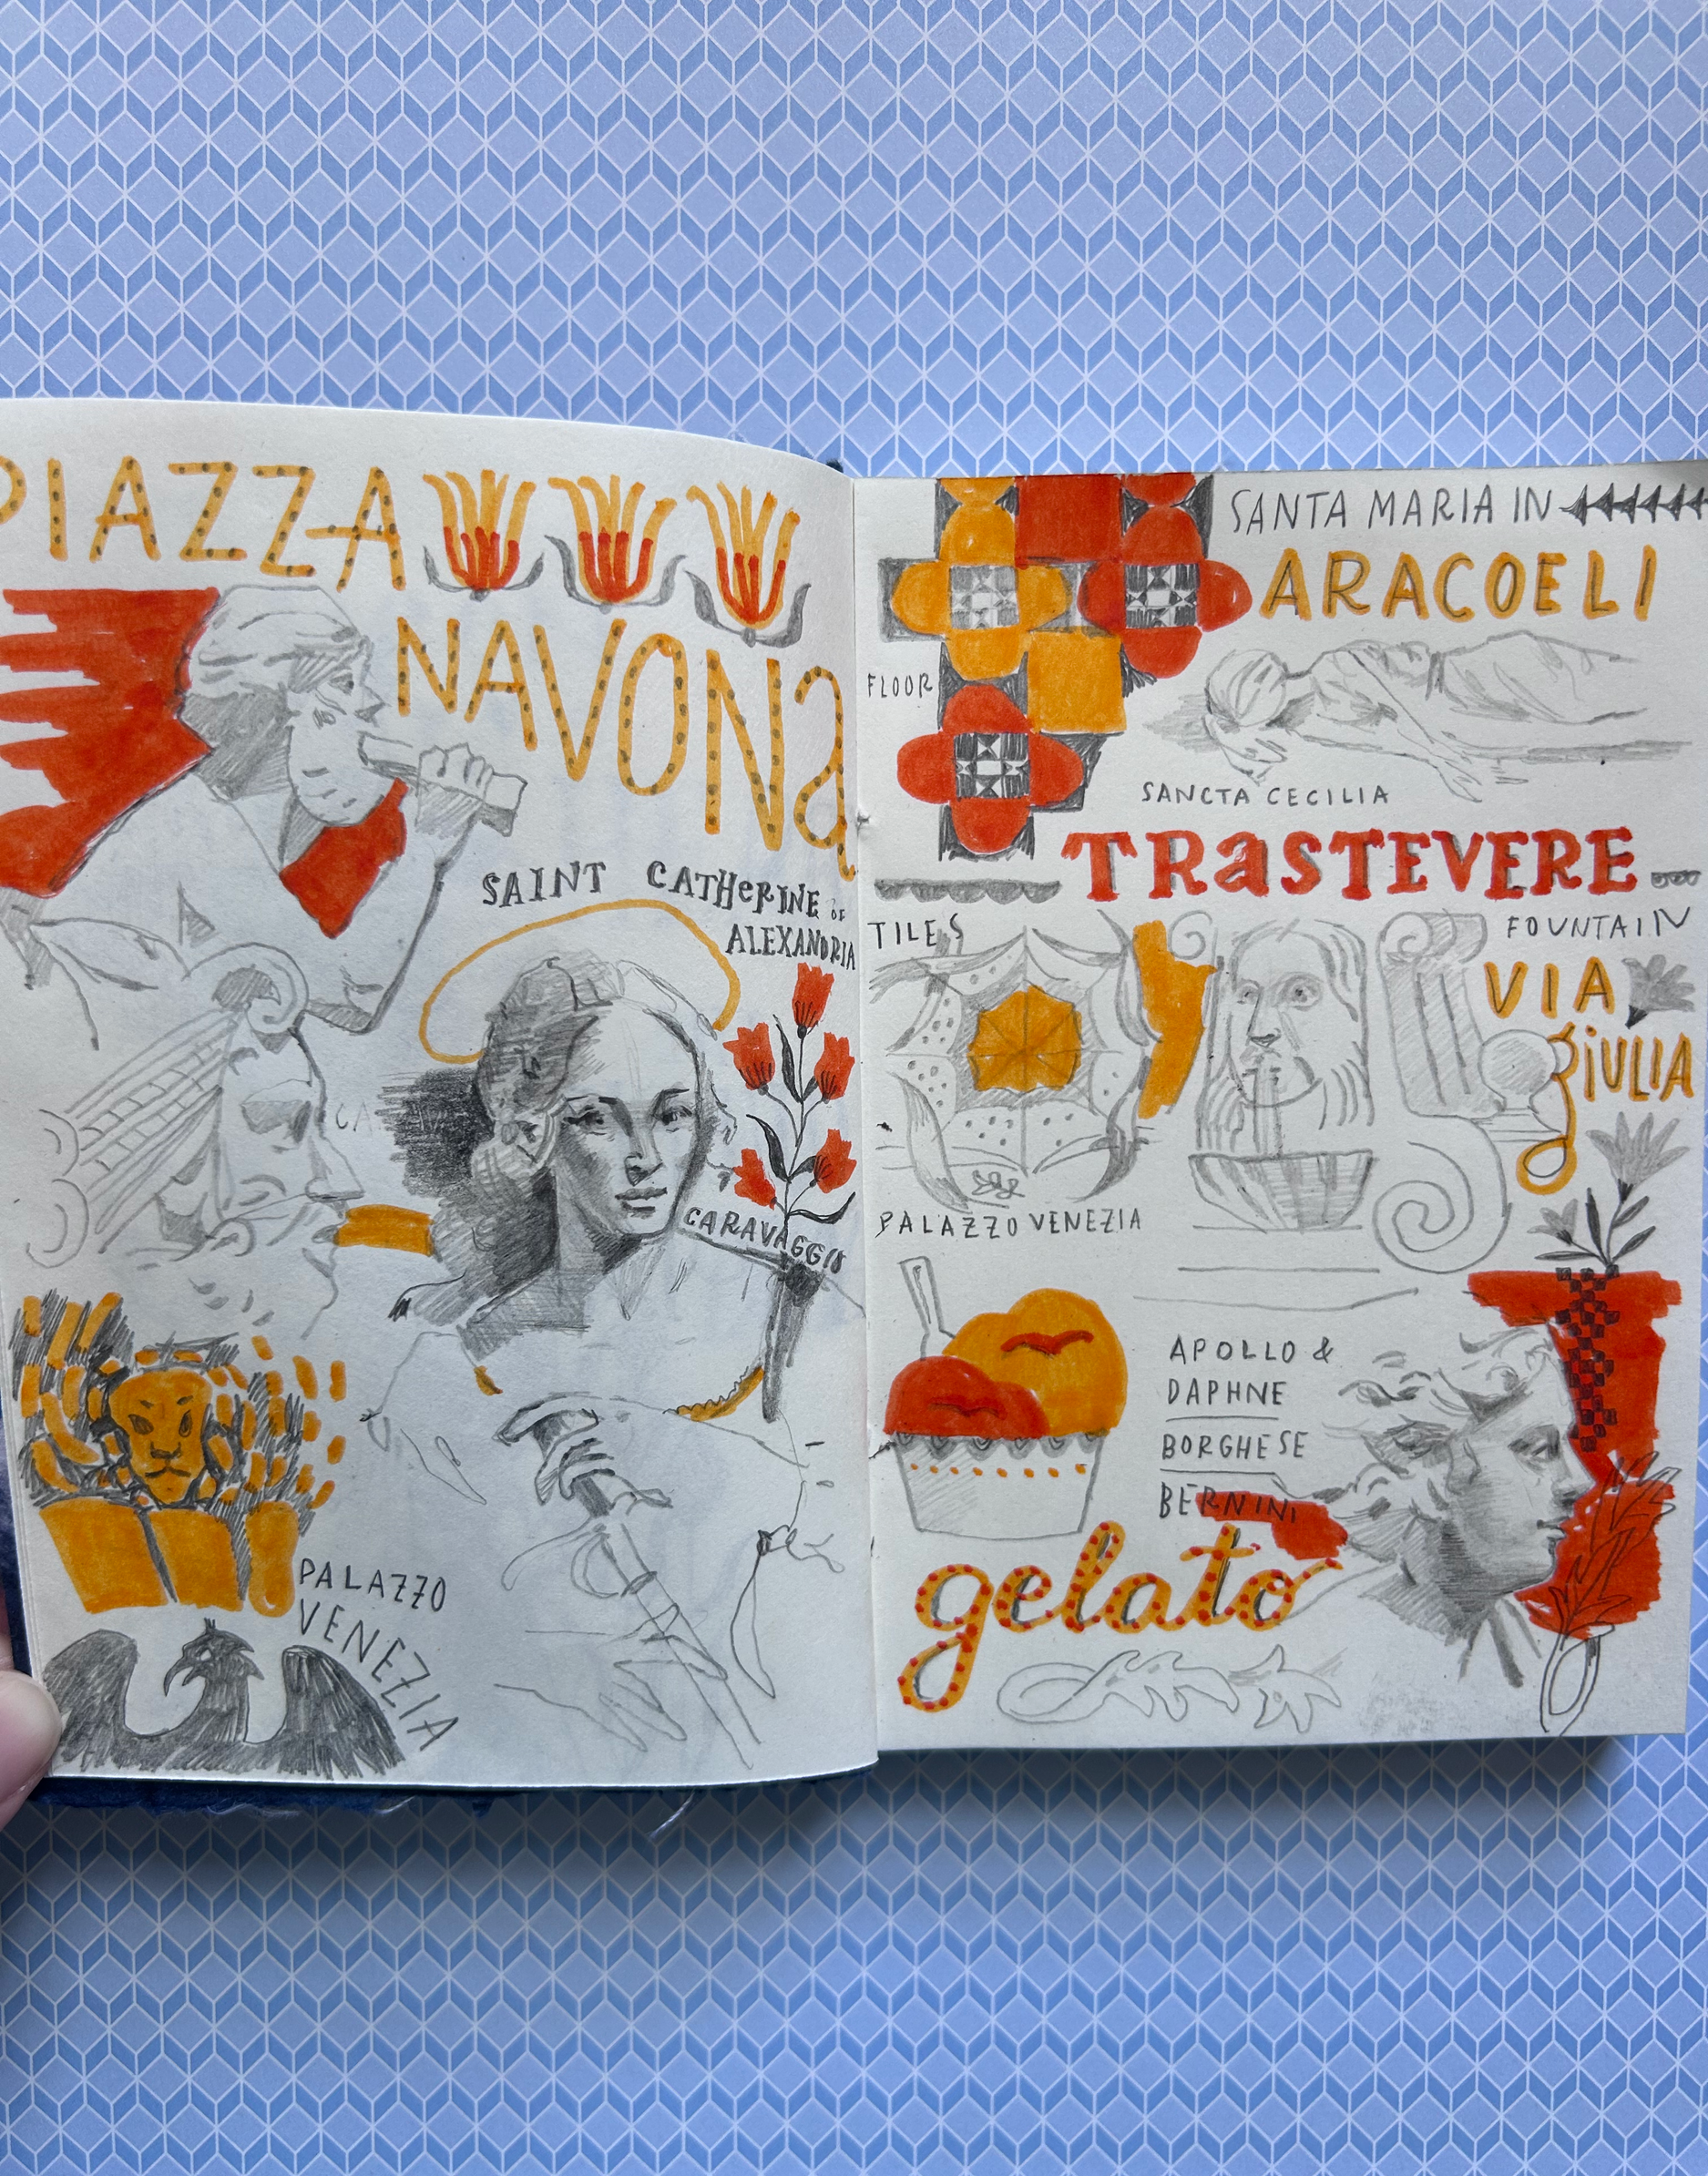 PIAZZA
NAVONa
SAINT CATHeRINE OF
ALEXANDRIA
CARAVAGGIO
PALAZZO
VENEZIA
SANTA MARIA IN
ARACOELI
FLOOR
SANCTA CECILIA
TRaSTEVERE
TILES
PALAZZO VENEZIA
FOUNTAIN
VIA
giULIA
APOLLO &
DAPHNE
BORGHESE
BERNINI
gelato